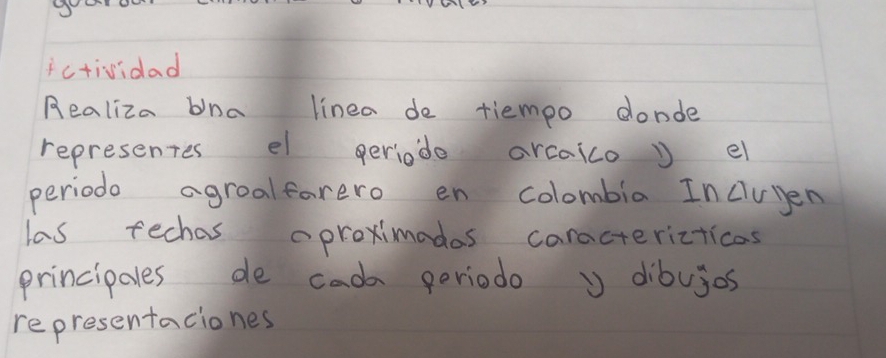 Actividad
Realiza una linea de tiempo donde
representes el periodo arcaico y el
periodo agroalfarero en colombia Incluyen
las fechas aproximadas caracterizticas
principales de cada periodo y dibujos
representaciones